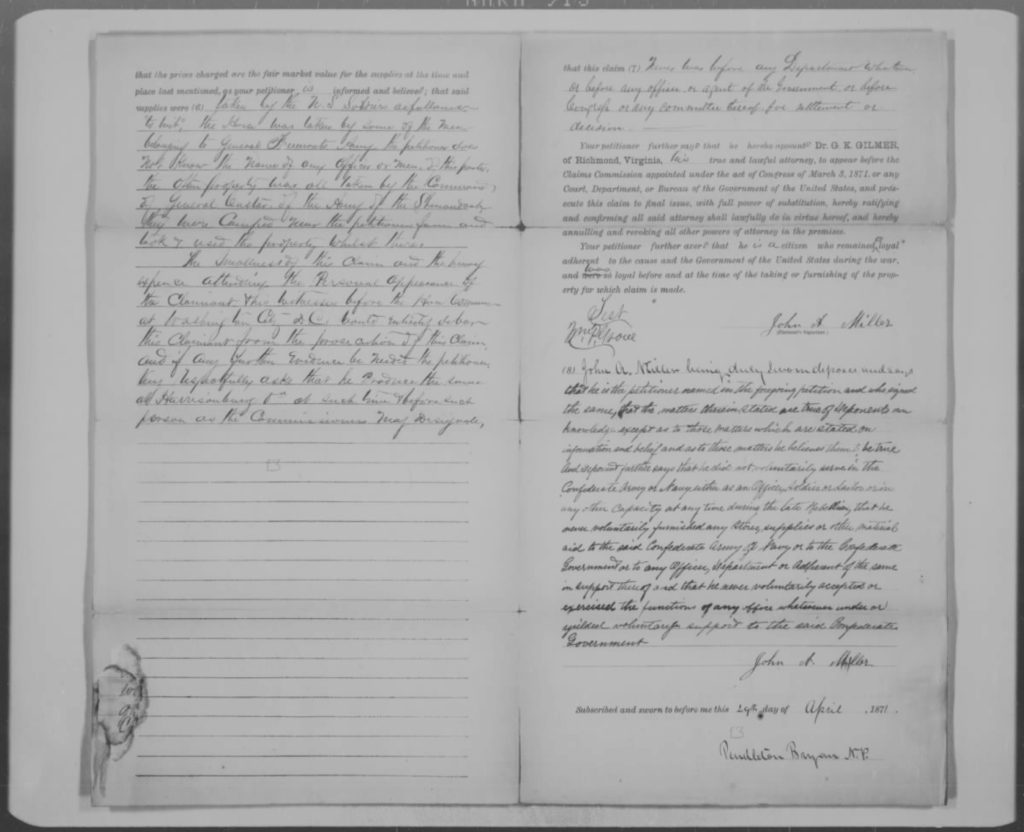 NARA 913
that the prices charged are the fair market value for the supplies at the time and
place last mentioned, as your petitioner is informed and believes; that said
supplies were (6) taken by the U.S Soldiers as follows
"to wit", the Horse was taken by some of the Men
belonging to General Army the petitioner does
Not Know the Name of any Officer or Men
the Other property was all taken by the Command,
General Custer of the Army of the Shenandoah
they were Camped Near the petitioners farm and
took & used the property whilst there
The Smallness of this Claim and the heavy
expence attending the Personal Appearance of
the Claimant & his Witnesses before the Hon
at Washington City D.C. would entirely debar
this Claimant from the prosecution of this Claim
and if any further Evidence be needed the petitioner
respectfully asks that he Produce the same
at Harrisonburg Va at such time & before such
person as the Commissioners may Designate,
13
that this claim (7) Never was before any Department whatever
or before any officer or agent of the Government or before
Congress or any committee thereof, for settlement or
decision.
Your petitioner further says that he hereby appoints Dr. G. K. GILMER,
of Richmond, Virginia, his true and lawful attorney, to appear before the
Claims Commission appointed under the act of Congress of March 3, 1871, or any
Court, Department, or Bureau of the Government of the United States, and prose-
cute this claim to final issue, with full power of substitution, hereby ratifying
and confirming all said attorney shall lawfully do in virtue hereof, and hereby
annulling and revoking all other powers of attorney in the premises.
Your petitioner further avers that he is a citizen who remained loyal
adherent to the cause and the Government of the United States during the war,
and was so loyal before and at the time of the taking or furnishing of the prop-
erty for which claim is made.
Test
John A Miller
(Petitioner's Signature.)
(8) John A. Miller being duly sworn deposes and says
that he is the petitioner named in the foregoing petition and who signed
the same, that the matters therein stated are true of deponents own
knowledge except as to those matters which are stated on
information and belief and as to those matters he believes them to be true
And deponent further says that he did not voluntarily serve in the
Confederate Army or Navy either as an Officer, Soldier or Sailor or in
any other Capacity at any time during the late Rebellion, that he
never voluntarily furnished any stores, supplies or other material
aid to the said Confederate Army or Navy or to the Confederate
Government or to any Officer, Department or Adherent of the same
in support thereof and that he never voluntarily accepted or
exercised the functions of any office whatsoever under or
yielded voluntary support to the said Confederate
Government
John A. Miller
Subscribed and sworn to before me this 29th day of April , 1871.
13
Pendleton Bryan N.P.